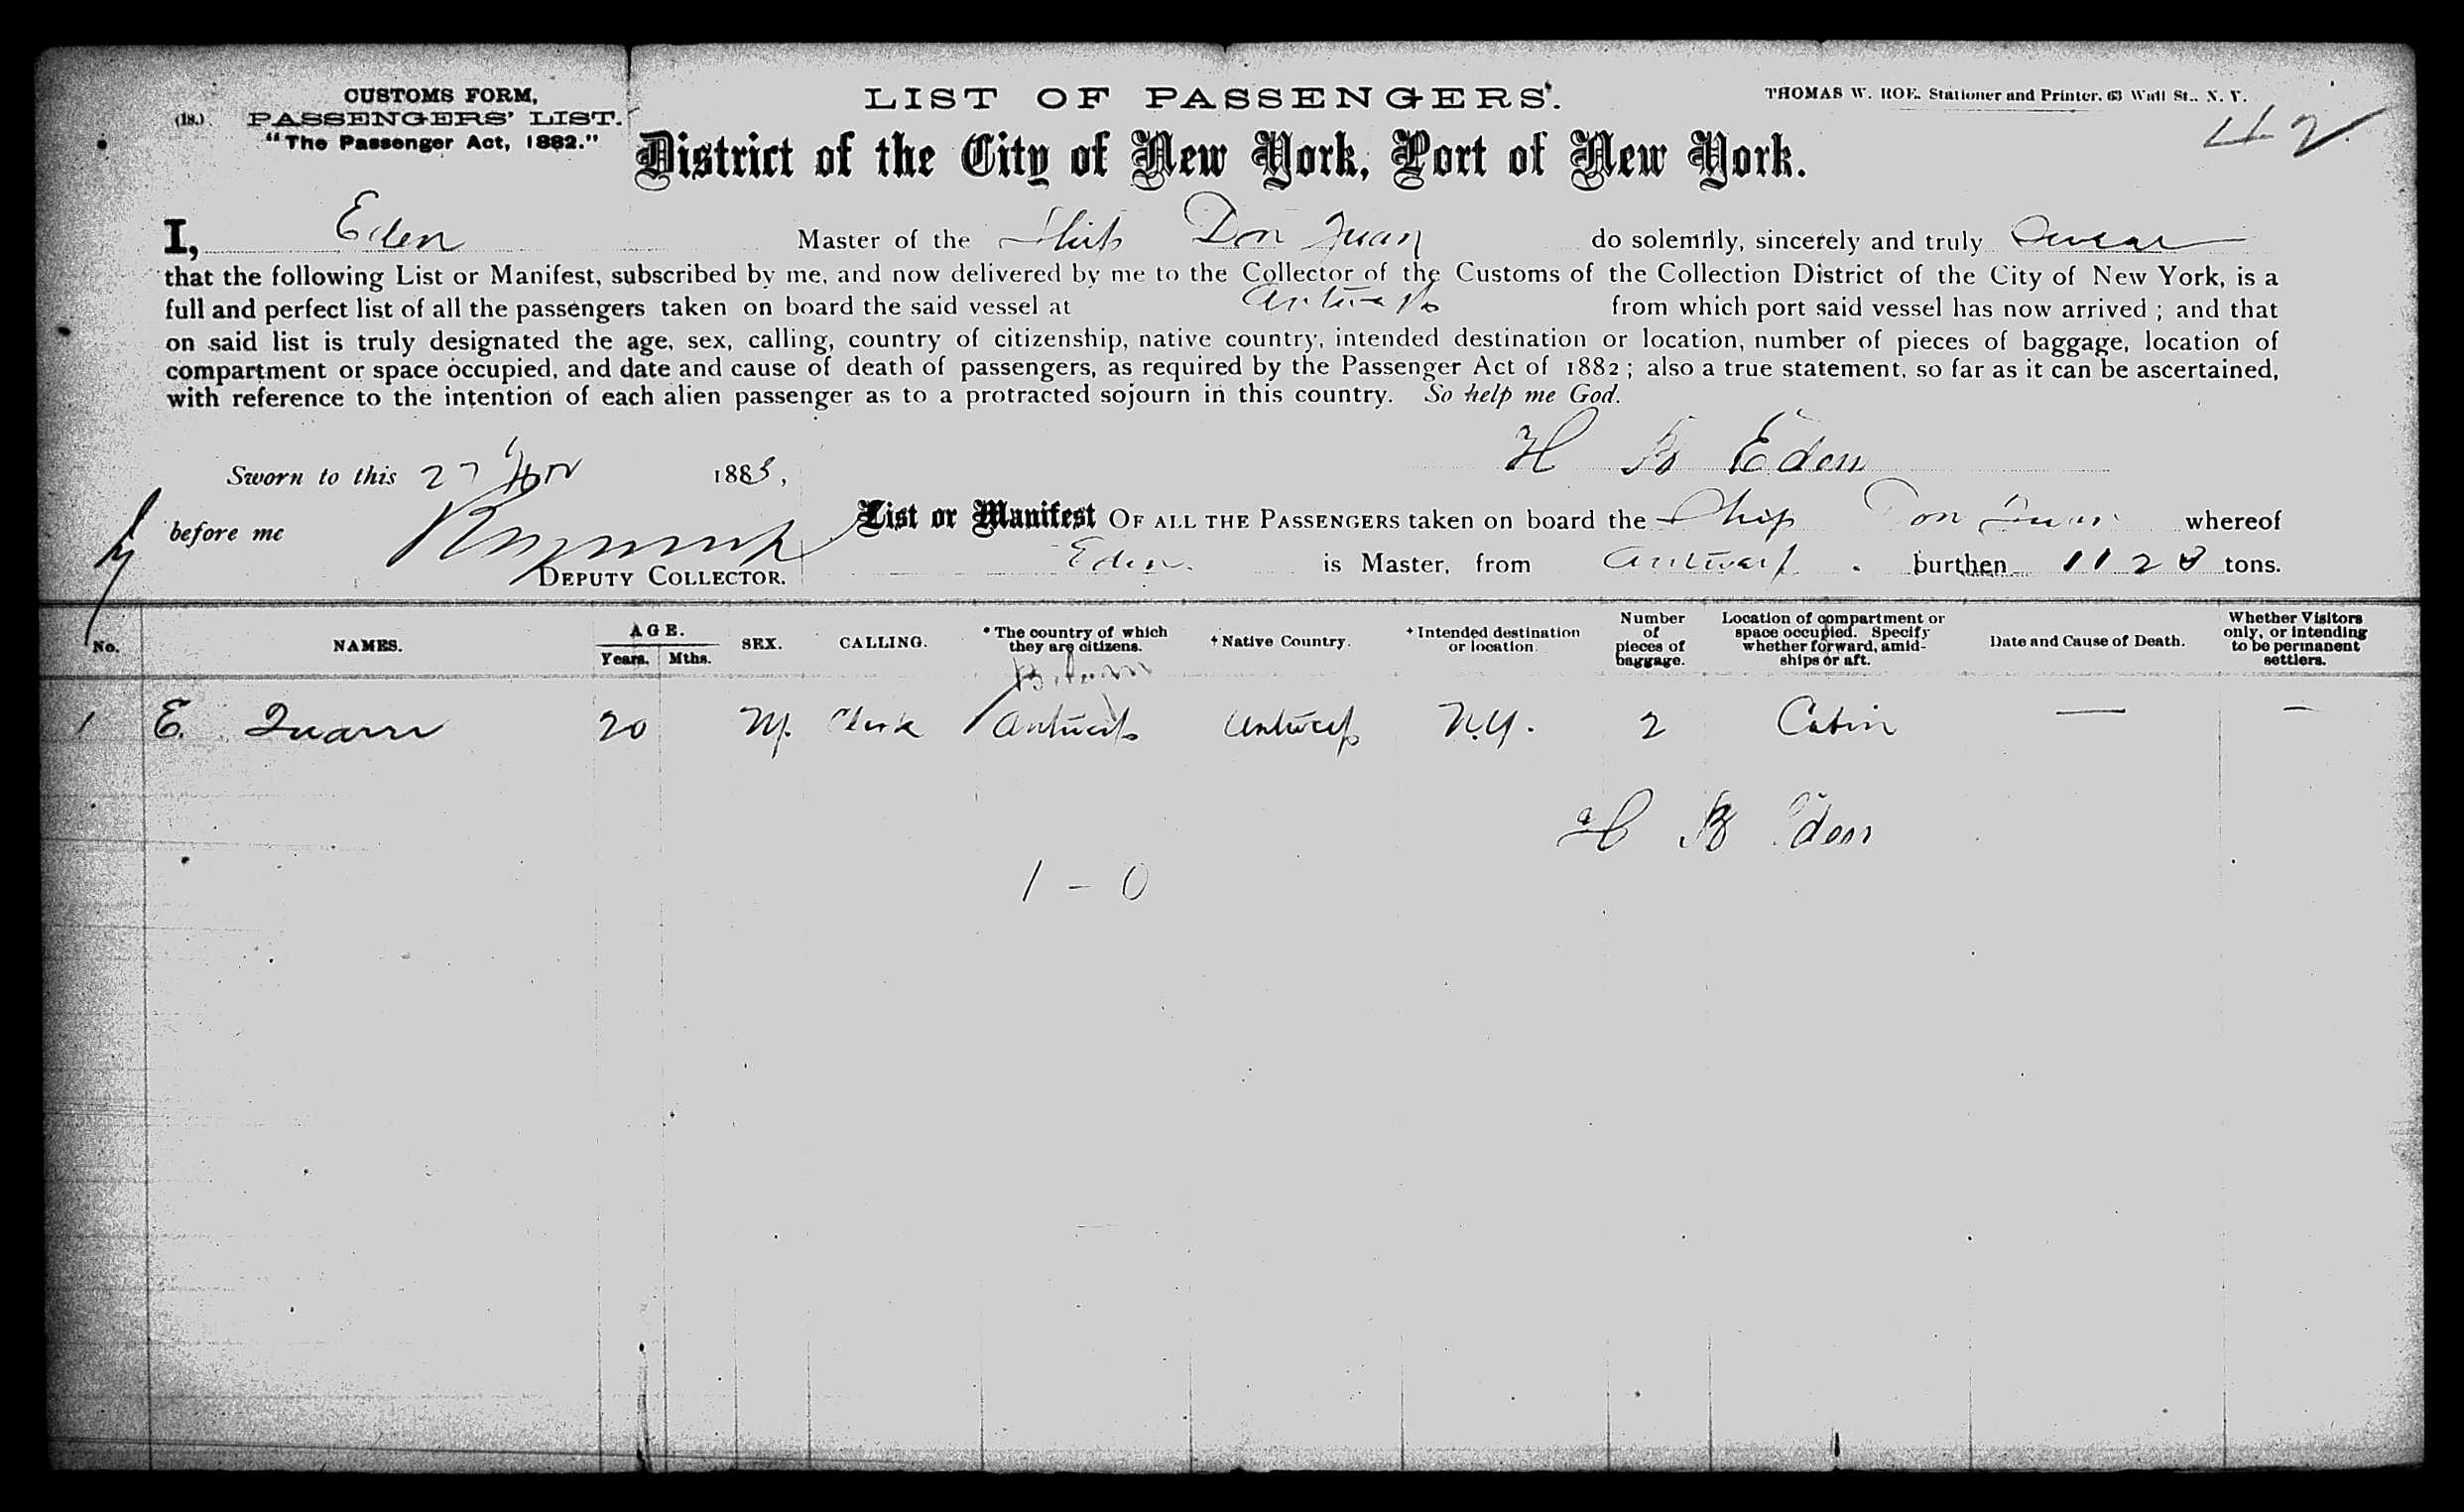 CUSTOMS FORM,
(18.) PASSENGERS' LIST.
"The Passenger Act, 1882."
LIST OF PASSENGERS.
THOMAS W. ROE. Stationer and Printer. 63 Wall St., N. Y.
42
District of the City of New York, Port of New York.
I, Eden Master of the Ship Don Juan do solemnly, sincerely and truly Swear
that the following List or Manifest, subscribed by me, and now delivered by me to the Collector of the Customs of the Collection District of the City of New York, is a
full and perfect list of all the passengers taken on board the said vessel at Antwerp from which port said vessel has now arrived; and that
on said list is truly designated the age, sex, calling, country of citizenship, native country, intended destination or location, number of pieces of baggage, location of
compartment or space occupied, and date and cause of death of passengers, as required by the Passenger Act of 1882; also a true statement, so far as it can be ascertained,
with reference to the intention of each alien passenger as to a protracted sojourn in this country. So help me God.
H B Eden
Sworn to this 27 Nov 1883,
before me
DEPUTY COLLECTOR.
List or Manifest OF ALL THE PASSENGERS taken on board the Ship Don Juan whereof
Eden is Master, from Antwerp. burthen 1128 tons.
No. NAMES. AGE. Years. Mths. SEX. CALLING. *The country of which they are citizens. +Native Country. +Intended destination or location. Number of pieces of baggage. Location of compartment or space occupied. Specify whether forward, amidships or aft. Date and Cause of Death. Whether Visitors only, or intending to be permanent settlers.
1 E. 20 M. Clerk Antwerp Antwerp N.Y. 2 Cabin — —
H B Eden
1 - 0